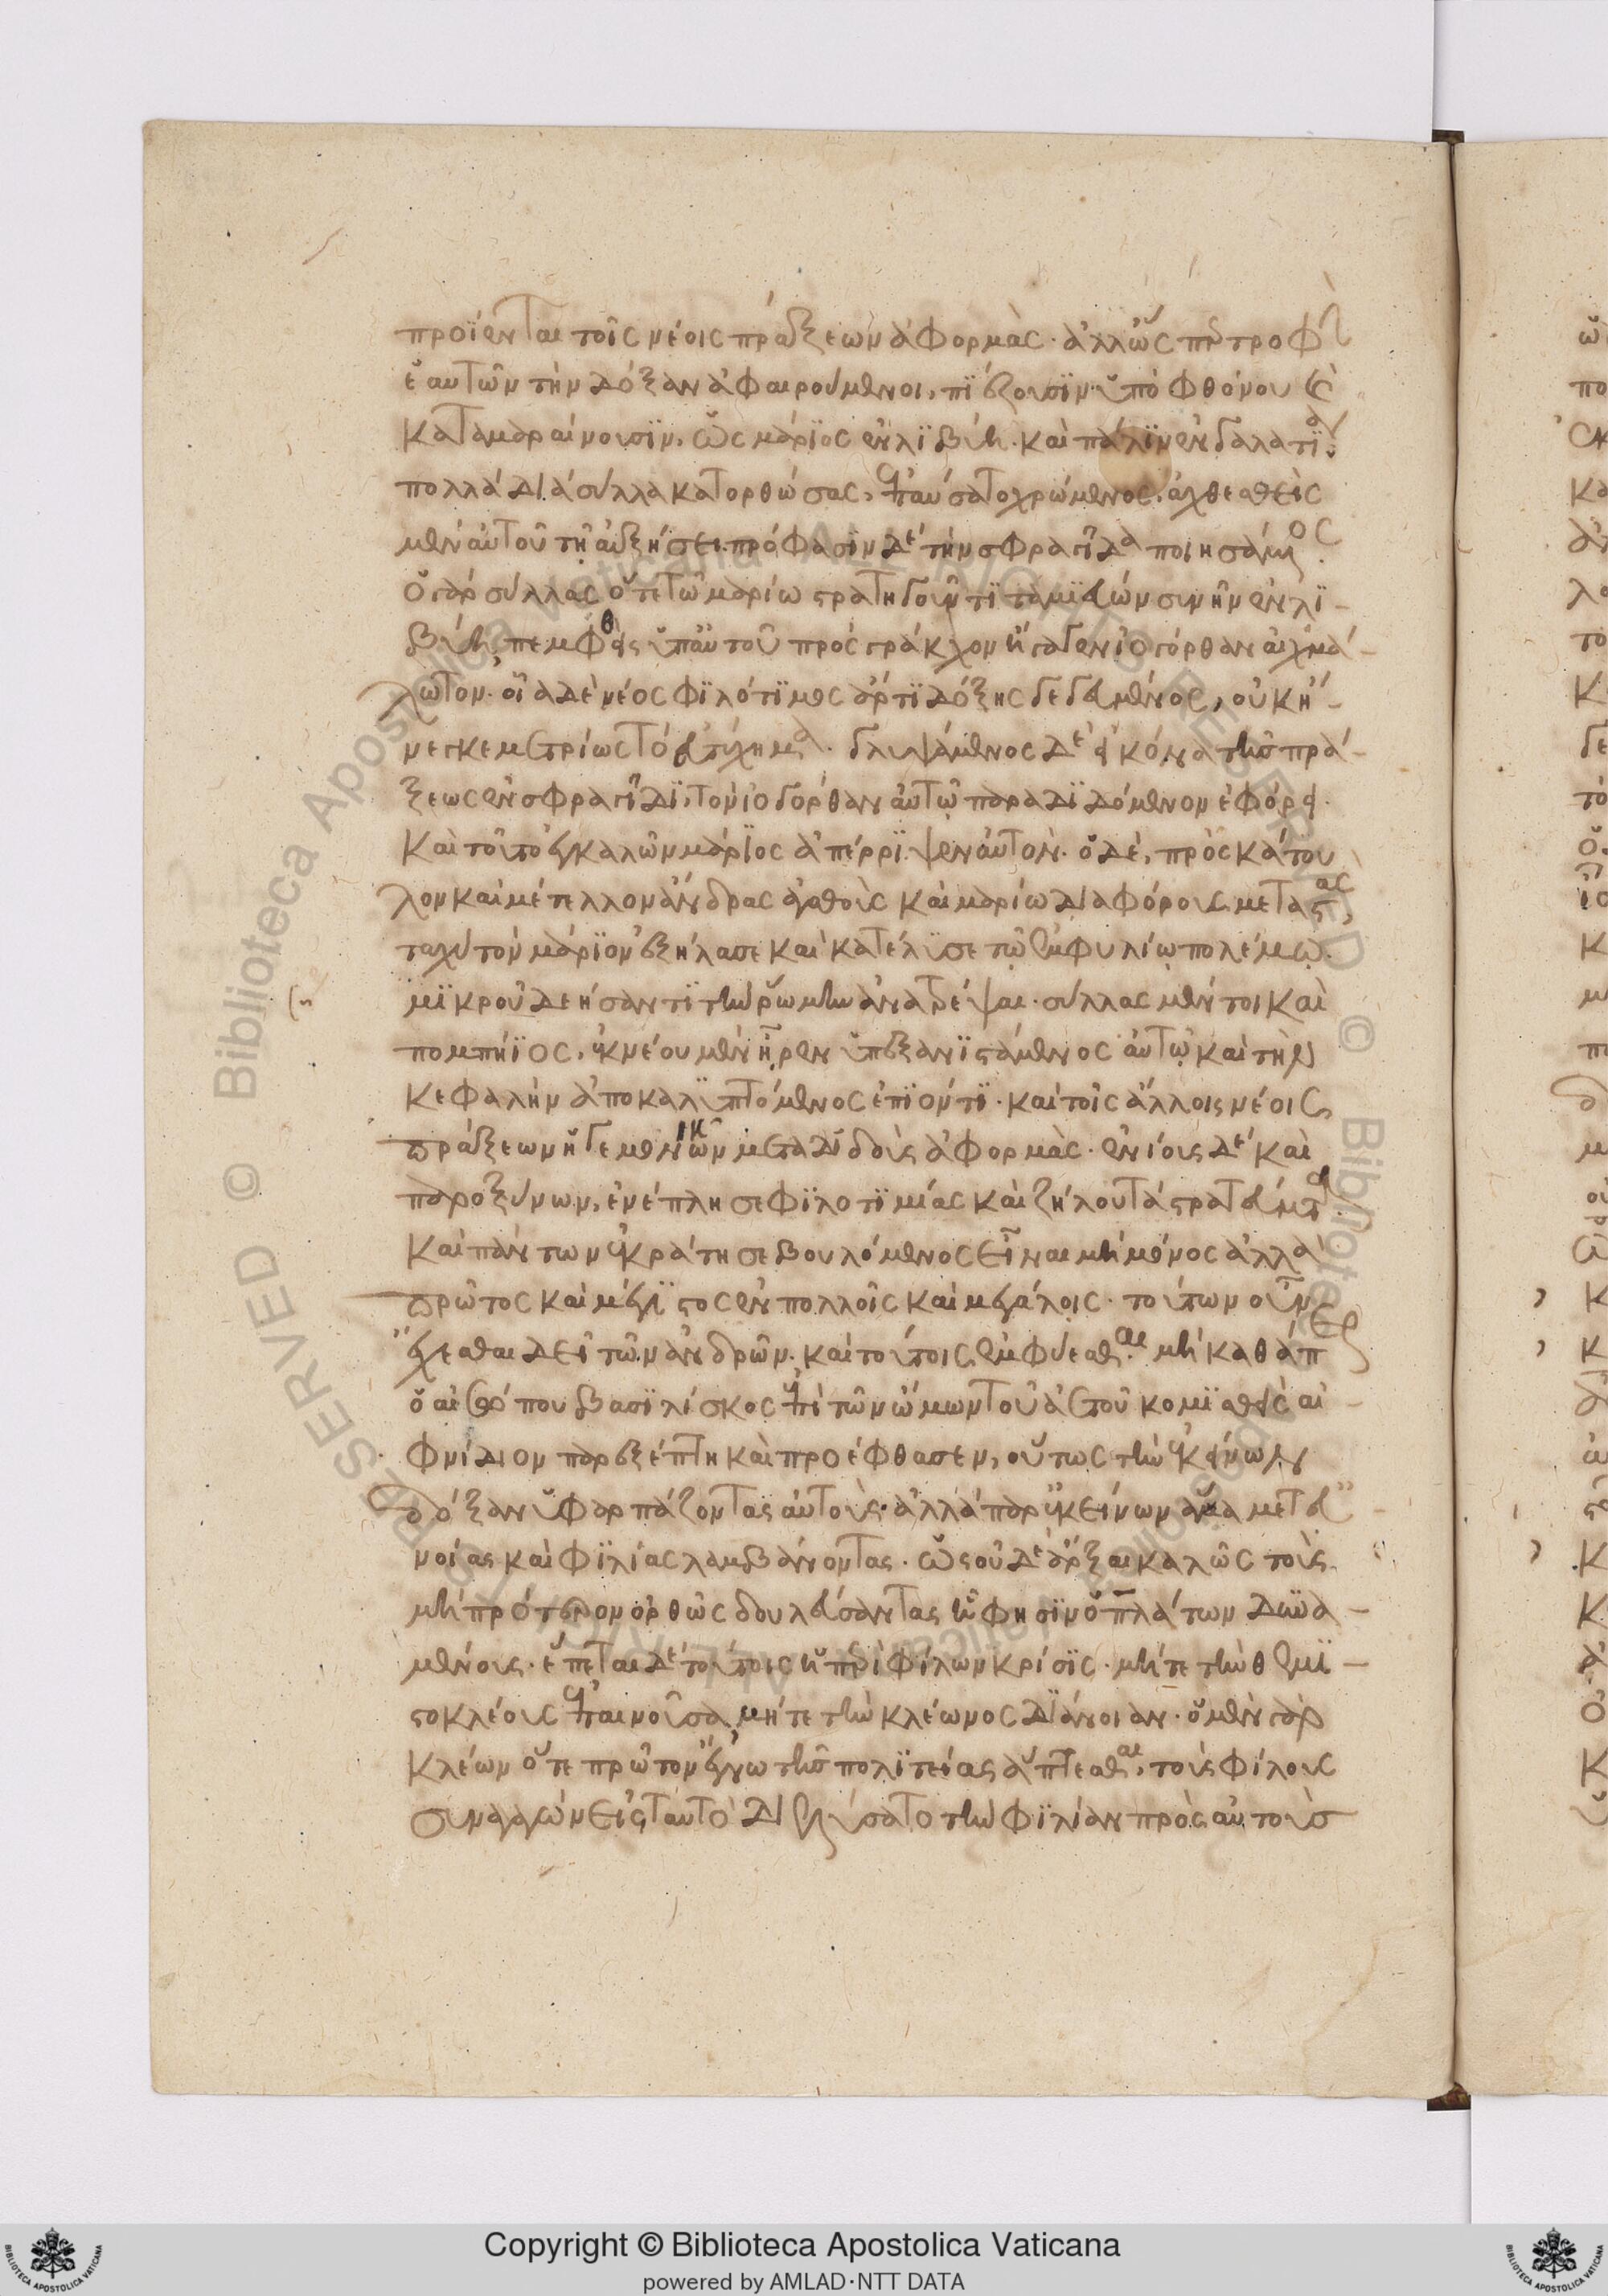 προΐενται τοῖς νέοις πράξεων ἀφορμὰς· ἀλλ' ὥσπερ τροφὴν
ἑαυτῶν τὴν δόξαν ἀφαιρούμενοι, πιέζουσιν ὑπὸ φθόνου καὶ
καταμαραίνουσιν, ὡς μάριος ἐν λιβύῃ· καὶ πάλιν ἐν γαλατίαν
πολλὰ διὰ σύλλα κατορθώσας, ἐπαύσατο χρώμενος, ἀχθεσθεὶς
μὲν αὐτοῦ τῇ αὐξήσει πρόφασιν δὲ τὴν σφραγῖδα ποιησάμενος
ὁ γὰρ σύλλας ὅτε τῶ μαρίω στρατηγοῦντι ταμιεύων συνῆν ἐν λι-
βύῃ, πεμφθεὶς ὑπ' αὐτοῦ πρὸς γράκχον ἤγαγεν ἰογόρθαν αἰχμά-
λωτον· οἷα δὲ νέος φιλότιμος ἄρτι δόξης γεγευμένος, οὐκ ἤ-
νεγκε μετρίως τὸ εὐτύχημα· γλυψάμενος δὲ εἰκόνα τῆς πρά-
ξεως ἐν σφραγῖδι, τὸν ἰογόρθαν αὐτῷ παραδιδόμενον ἐφόρει·
καὶ τοῦτο ἐγκαλῶν μάριος ἀπέρριψεν αὐτόν· ὁ δὲ, πρὸς κάτου
λον καὶ μέτελλον ἄνδρας ἀγαθοὺς καὶ μαρίω διαφόρους μεταστὰς,
ταχὺ τὸν μάριον ἐξήλασε καὶ κατέλυσε τῷ ἐμφυλίῳ πολέμῳ
μικροῦ δεήσαντι τὴν ῥώμην ἀνατρέψαι· σύλλας μέντοι καὶ
πομπήϊος, ἐκ νέου μὲν ἦρεν ὑπεξανιστάμενος αὐτῷ καὶ τὴν
κεφαλὴν ἀποκαλυπτόμενος ἐπιόντι· καὶ τοῖς ἄλλοις νέοις
πράξεων ἡγεμονικῶν μεταδιδοὺς ἀφορμὰς· ἐνίους δὲ καὶ
παροξύνων, ἐνέπλησε φιλοτιμίας καὶ ζήλου τὰ στρατεύματα
καὶ πάντων ἐκράτησε βουλόμενος εἶναι μὴ μόνος ἀλλὰ
πρῶτος καὶ μέγιστος ἐν πολλοῖς καὶ μεγάλοις· τούτων οὖν
ἔχεσθαι δεῖ τῶν ἀνδρῶν· καὶ τούτοις ἐμφύεσθαι μὴ καθάπερ
ὁ αἰσώπου βασιλίσκος ἐπὶ τῶν ὤμων τοῦ ἀετοῦ κομισθεὶς αἰ-
φνίδιον παρεξέπτη καὶ προέφθασεν, οὕτως τὴν ἐκείνων
δόξαν ὑφαρπάζοντας αὐτούς· ἀλλὰ παρ' ἐκείνων ἅμα μετ' εὐ-
νοίας καὶ φιλίας λαμβάνοντας· ὡς οὐδὲ ἄρξαι καλῶς τοὺς
μὴ πρότερον ὀρθῶς δουλεύσαντας ᾗ φησιν ὁ πλάτων δυνα-
μένους· ἕπεται δὲ τούτοις ἡ περὶ φίλων κρίσις· μήτε τὴν θεμι-
στοκλέους ἐπαινοῦσα, μήτε τὴν κλέωνος διάνοιαν· ὁ μὲν γὰρ
κλέων ὅτε πρῶτον ἔγνω τῆς πολιτείας ἅπτεσθαι, τοὺς φίλους
συναγαγὼν εἰς ταυτὸ διελύσατο τὴν φιλίαν πρὸς αὐτοὺς
Copyright © Biblioteca Apostolica Vaticana
powered by AMLAD·NTT DATA